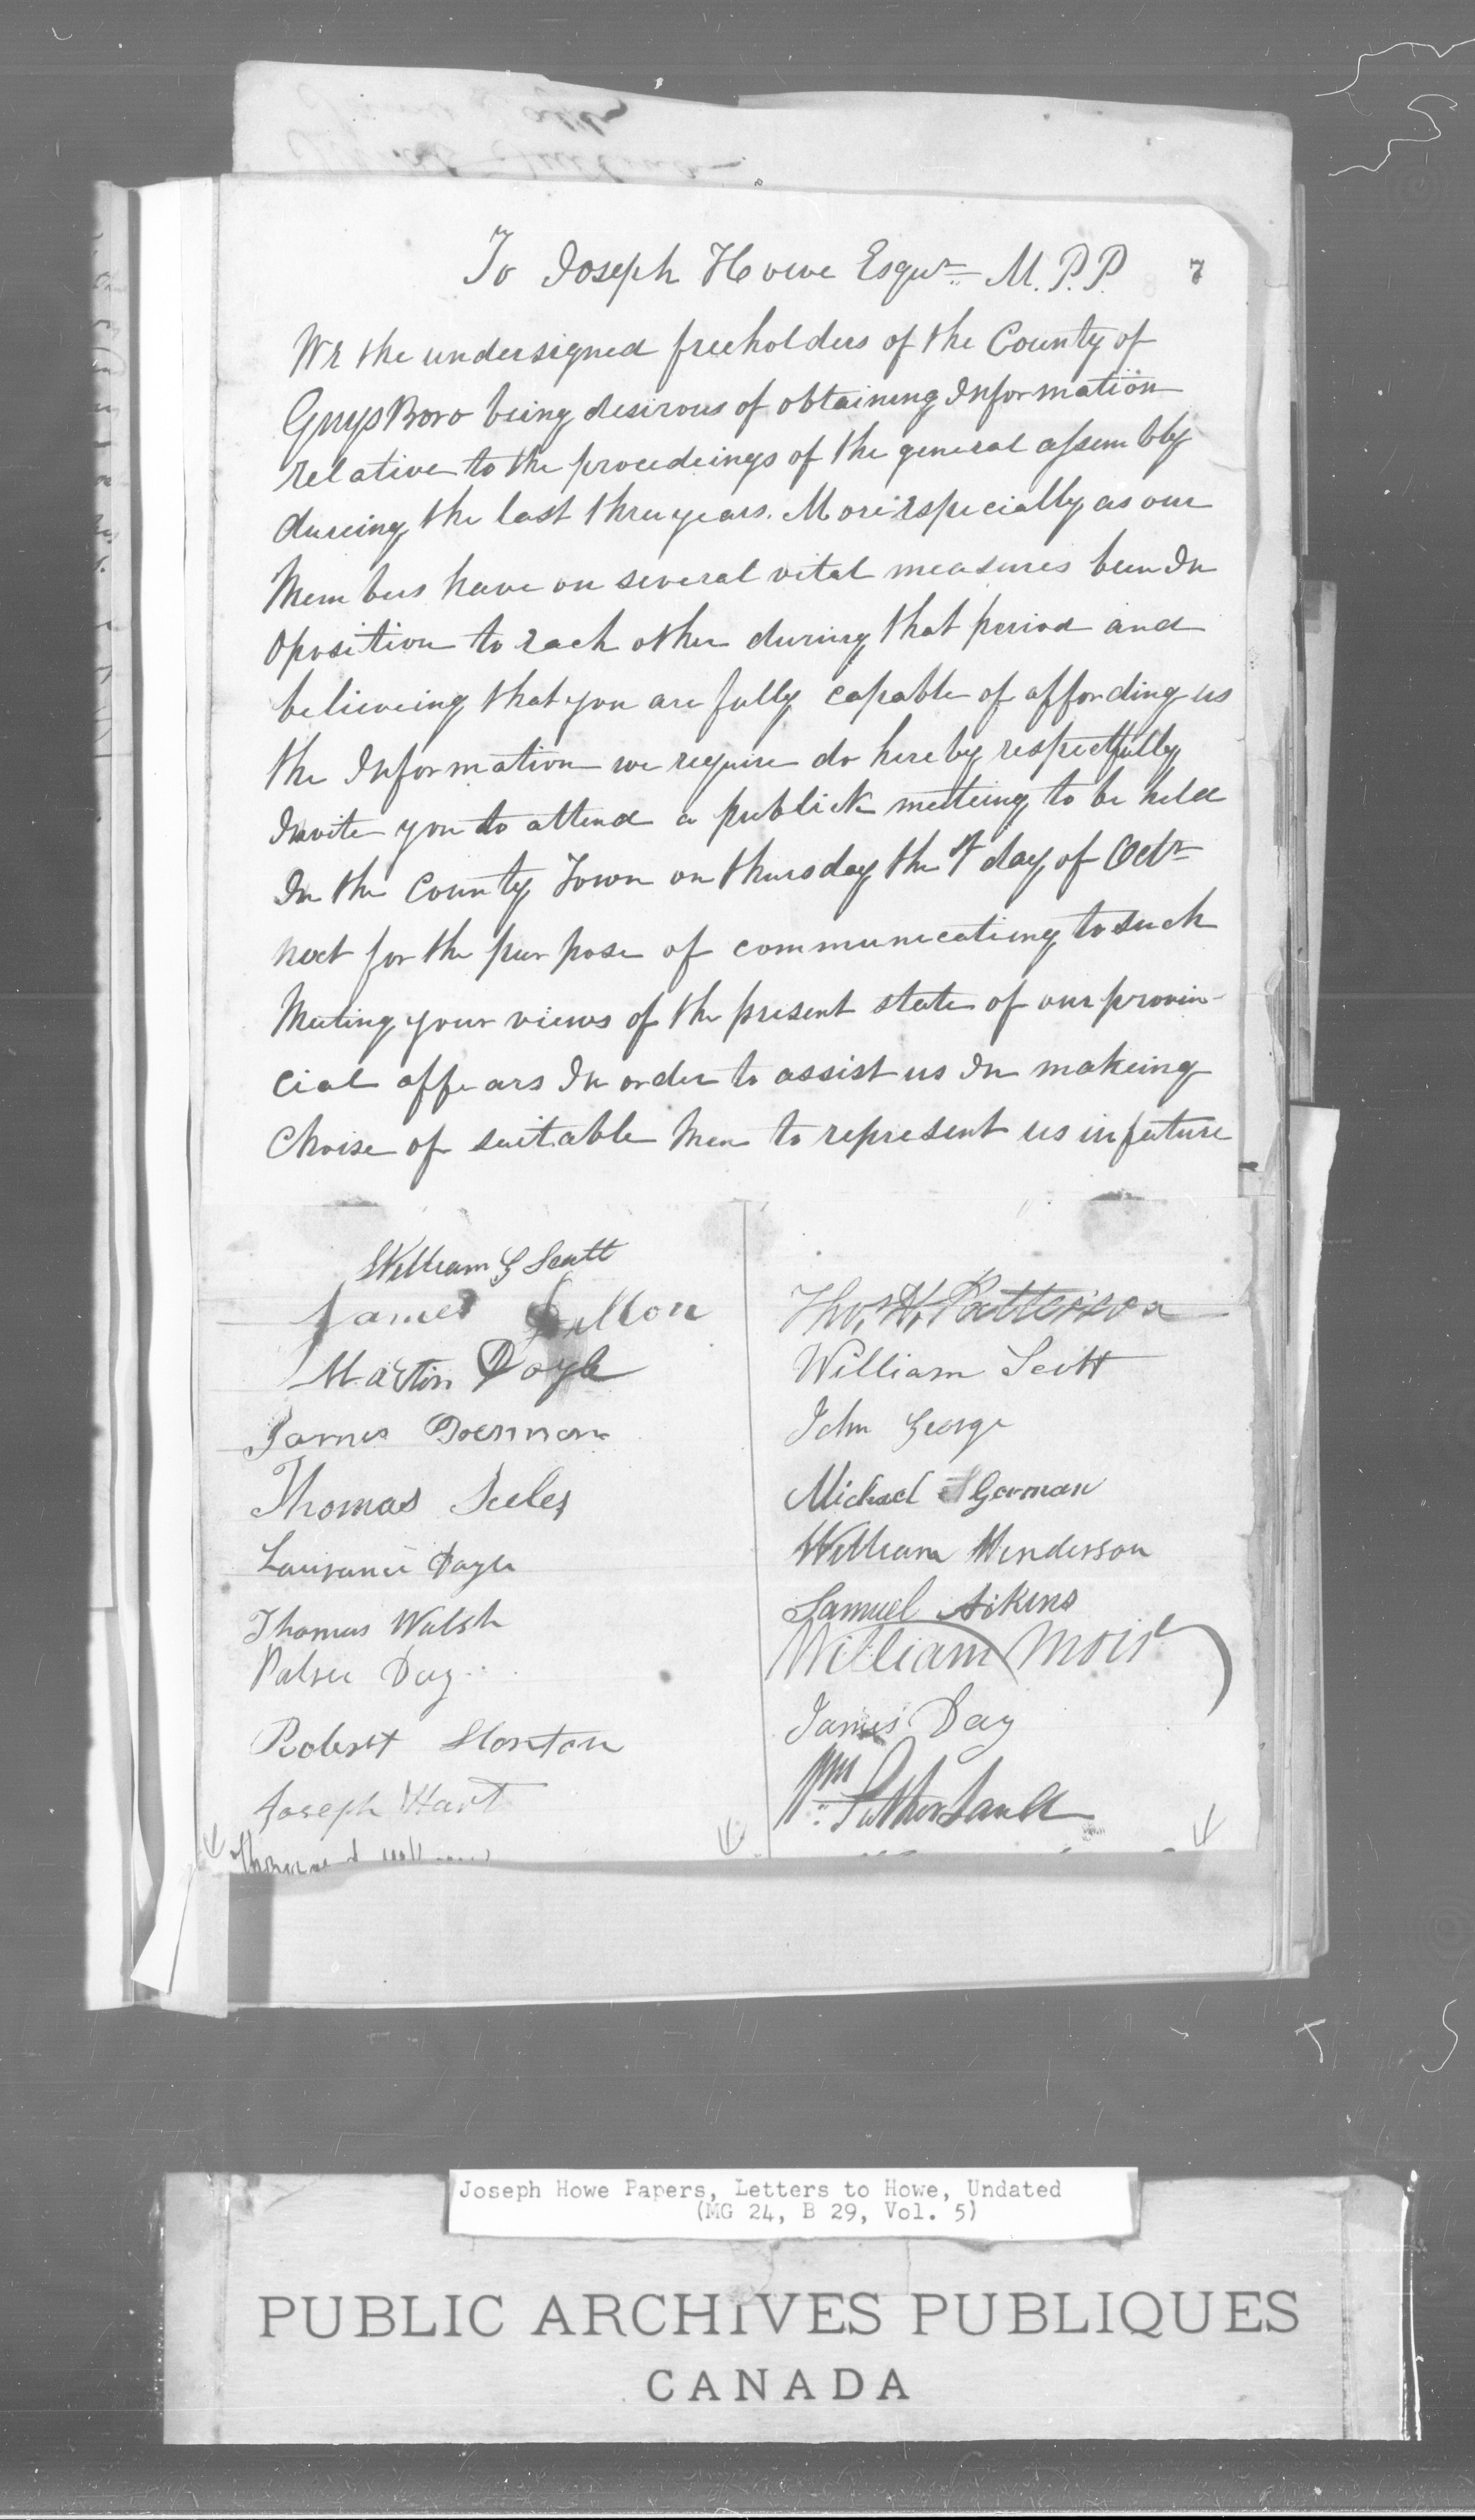 To Joseph Howe Esqur M.P.P. 7
We the undersigned freeholders of the County of
GuysBoro being desirous of obtaining Information
relative to the proceedeings of the general assembly
dureing the last three years. More Especially as our
Members have on several vital measures been In
Oposition to each other during that period and
believeing that you are fully capable of affording us
the Information we require do hereby respectfully
Invite you to attend a publick meeteing to be held
In the County Town on thursday the day of Octr
next for the purpose of communicationg to such
Meeting your views of the present state of our provin-
cial affears In order to assist us In makeing
Choise of suitable Men to represent us in future
William G Scott
James
Martin Doyle
James
Thomas
Laurance Doyle
Thomas Walsh
Day
Robert
Joseph Hart
Thos. H. Patterson
William Scott
John George
Michael Gorman
William Henderson
Samuel Aikins
William Moir
James Day
Wm Sutherland
Joseph Howe Papers, Letters to Howe, Undated
(MG 24, B 29, Vol. 5)
PUBLIC ARCHIVES PUBLIQUES
CANADA